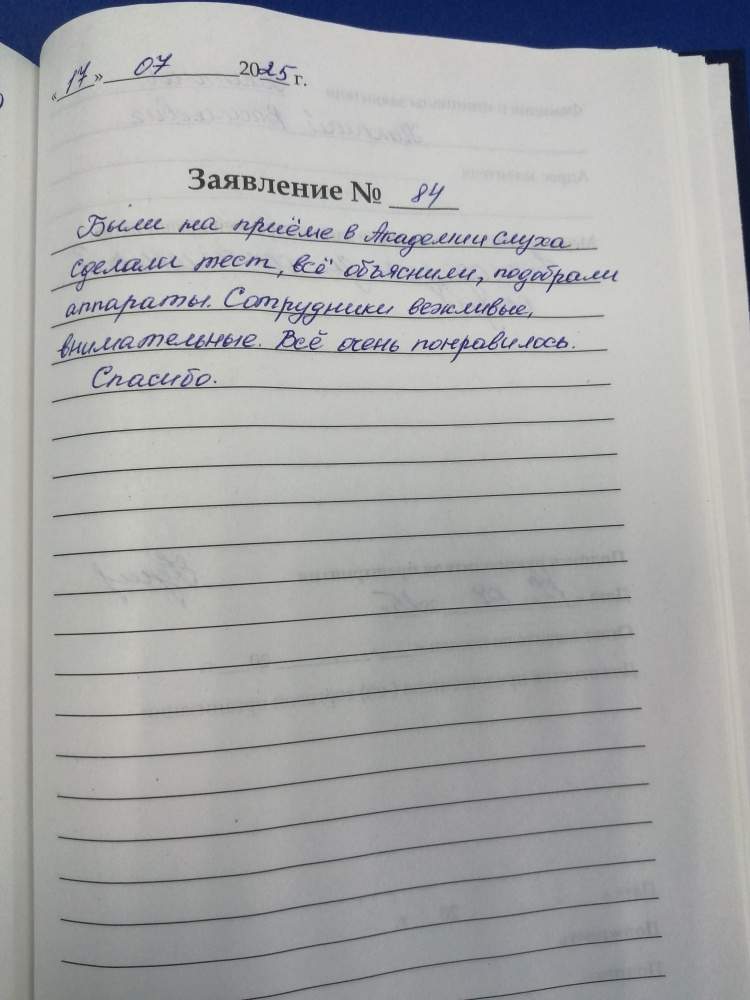 «17» 07 2025 г.
Заявление № 84
Были на приёме в Академии слуха
сделали тест, всё объяснили, подобрали
аппараты. Сотрудники вежливые,
внимательные. Всё очень понравилось.
Спасибо.